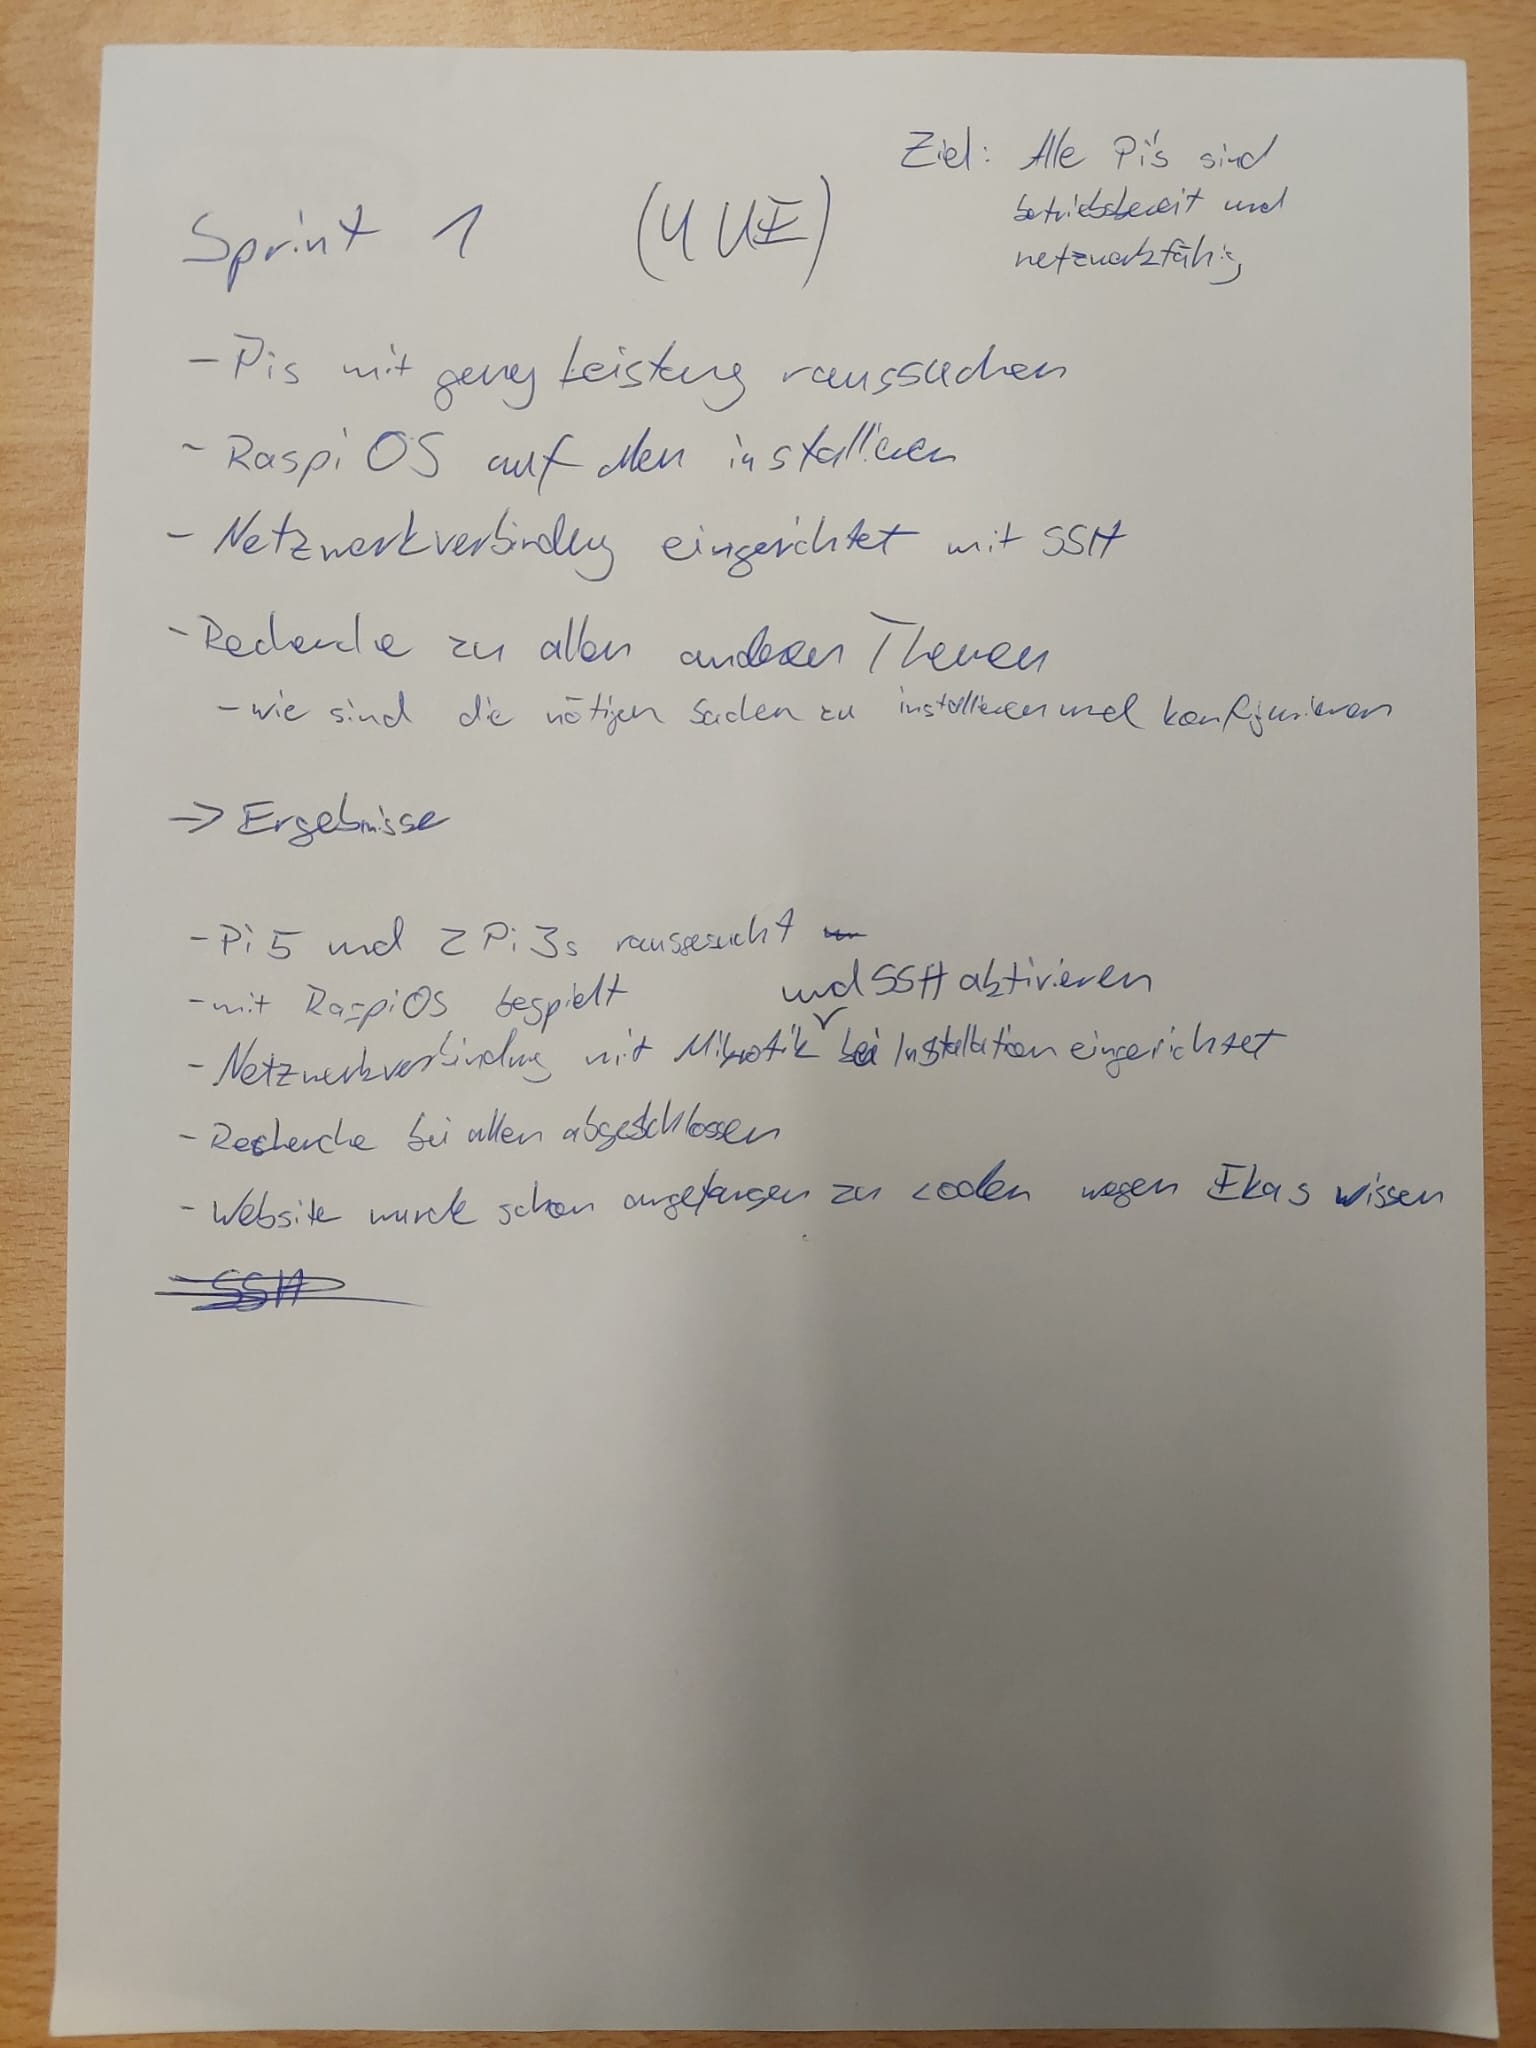 Ziel: Alle Pi's sind
betriebsbereit und
netzwerkfähig
Sprint 1 (4 UE)
- Pis mit genug Leistung raussuchen
- RaspiOS auf allen installieren
- Netzwerkverbindung eingerichtet mit SSH
- Recherche zu allen anderen Themen
- wie sind die nötigen Sachen zu installieren und konfigurieren
-> Ergebnisse
- Pi 5 und 2 Pi 3s rausgesucht
- mit RaspiOS bespielt
und SSH aktivieren
- Netzwerkverbindung mit Mikrotik bei Installation eingerichtet
- Recherche bei allen abgeschlossen
- Website wurde schon angefangen zu coden wegen Ekas wissen
SSH